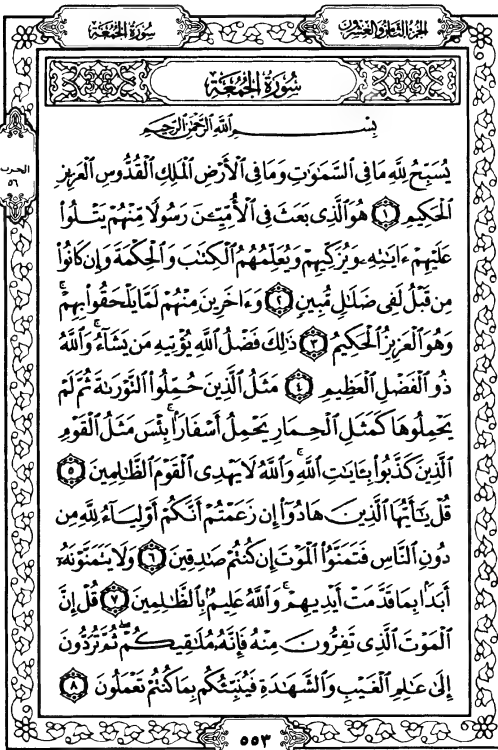 الجزء الثامن والعشرون
سورة الجمعة
سُورَةُ الجُمُعَة
بِسْمِ اللَّهِ الرَّحْمَٰنِ الرَّحِيمِ
الحزب
٥٦
يُسَبِّحُ لِلَّهِ مَا فِي السَّمَٰوَٰتِ وَمَا فِي الْأَرْضِ الْمَلِكِ الْقُدُّوسِ الْعَزِيزِ
الْحَكِيمِ ۝١ هُوَ الَّذِي بَعَثَ فِي الْأُمِّيِّـۧنَ رَسُولًا مِّنْهُمْ يَتْلُوا۟
عَلَيْهِمْ ءَايَٰتِهِۦ وَيُزَكِّيهِمْ وَيُعَلِّمُهُمُ الْكِتَٰبَ وَالْحِكْمَةَ وَإِن كَانُوا۟
مِن قَبْلُ لَفِي ضَلَٰلٍ مُّبِينٍ ۝٢ وَءَاخَرِينَ مِنْهُمْ لَمَّا يَلْحَقُوا۟ بِهِمْ ۚ
وَهُوَ الْعَزِيزُ الْحَكِيمُ ۝٣ ذَٰلِكَ فَضْلُ اللَّهِ يُؤْتِيهِ مَن يَشَآءُ ۚ وَاللَّهُ
ذُو الْفَضْلِ الْعَظِيمِ ۝٤ مَثَلُ الَّذِينَ حُمِّلُوا۟ التَّوْرَىٰةَ ثُمَّ لَمْ
يَحْمِلُوهَا كَمَثَلِ الْحِمَارِ يَحْمِلُ أَسْفَارًۢا ۚ بِئْسَ مَثَلُ الْقَوْمِ
الَّذِينَ كَذَّبُوا۟ بِـَٔايَٰتِ اللَّهِ ۚ وَاللَّهُ لَا يَهْدِي الْقَوْمَ الظَّٰلِمِينَ ۝٥
قُلْ يَٰٓأَيُّهَا الَّذِينَ هَادُوٓا۟ إِن زَعَمْتُمْ أَنَّكُمْ أَوْلِيَآءُ لِلَّهِ مِن
دُونِ النَّاسِ فَتَمَنَّوُا۟ الْمَوْتَ إِن كُنتُمْ صَٰدِقِينَ ۝٦ وَلَا يَتَمَنَّوْنَهُۥٓ
أَبَدًۢا بِمَا قَدَّمَتْ أَيْدِيهِمْ ۚ وَاللَّهُ عَلِيمٌۢ بِالظَّٰلِمِينَ ۝٧ قُلْ إِنَّ
الْمَوْتَ الَّذِي تَفِرُّونَ مِنْهُ فَإِنَّهُۥ مُلَٰقِيكُمْ ۖ ثُمَّ تُرَدُّونَ
إِلَىٰ عَٰلِمِ الْغَيْبِ وَالشَّهَٰدَةِ فَيُنَبِّئُكُم بِمَا كُنتُمْ تَعْمَلُونَ ۝٨
٥٥٣